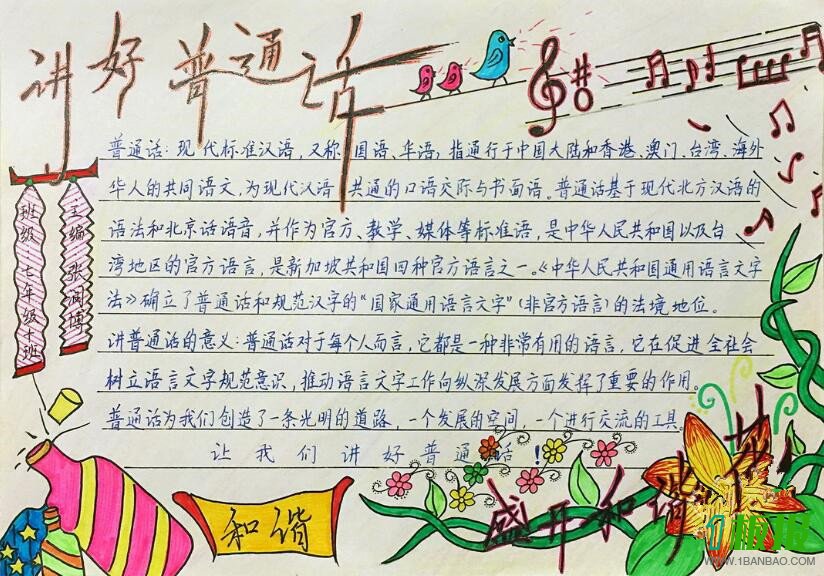 讲好普通话
普通话:现代标准汉语,又称国语、华语,指通行于中国大陆和香港、澳门、台湾、海外
华人的共同语文,为现代汉语共通的口语交际与书面语。普通话基于现代北方汉语的
语法和北京话语音,并作为官方、教学、媒体等标准语,是中华人民共和国以及台
湾地区的官方语言,是新加坡共和国四种官方语言之一。《中华人民共和国通用语言文字
法》确立了普通话和规范汉字的“国家通用语言文字”(非官方语言)的法境地位。
讲普通话的意义:普通话对于每个人而言,它都是一种非常有用的语言,它在促进全社会
树立语言文字规范意识,推动语言文字工作向纵深发展方面发挥了重要的作用。
普通话为我们创造了一条光明的道路,一个发展的空间,一个进行交流的工具。
让我们讲好普通话!
班级 七年级十班
主编 张润博
和谐
盛开和谐花
板报
WWW.1BANBAO.COM